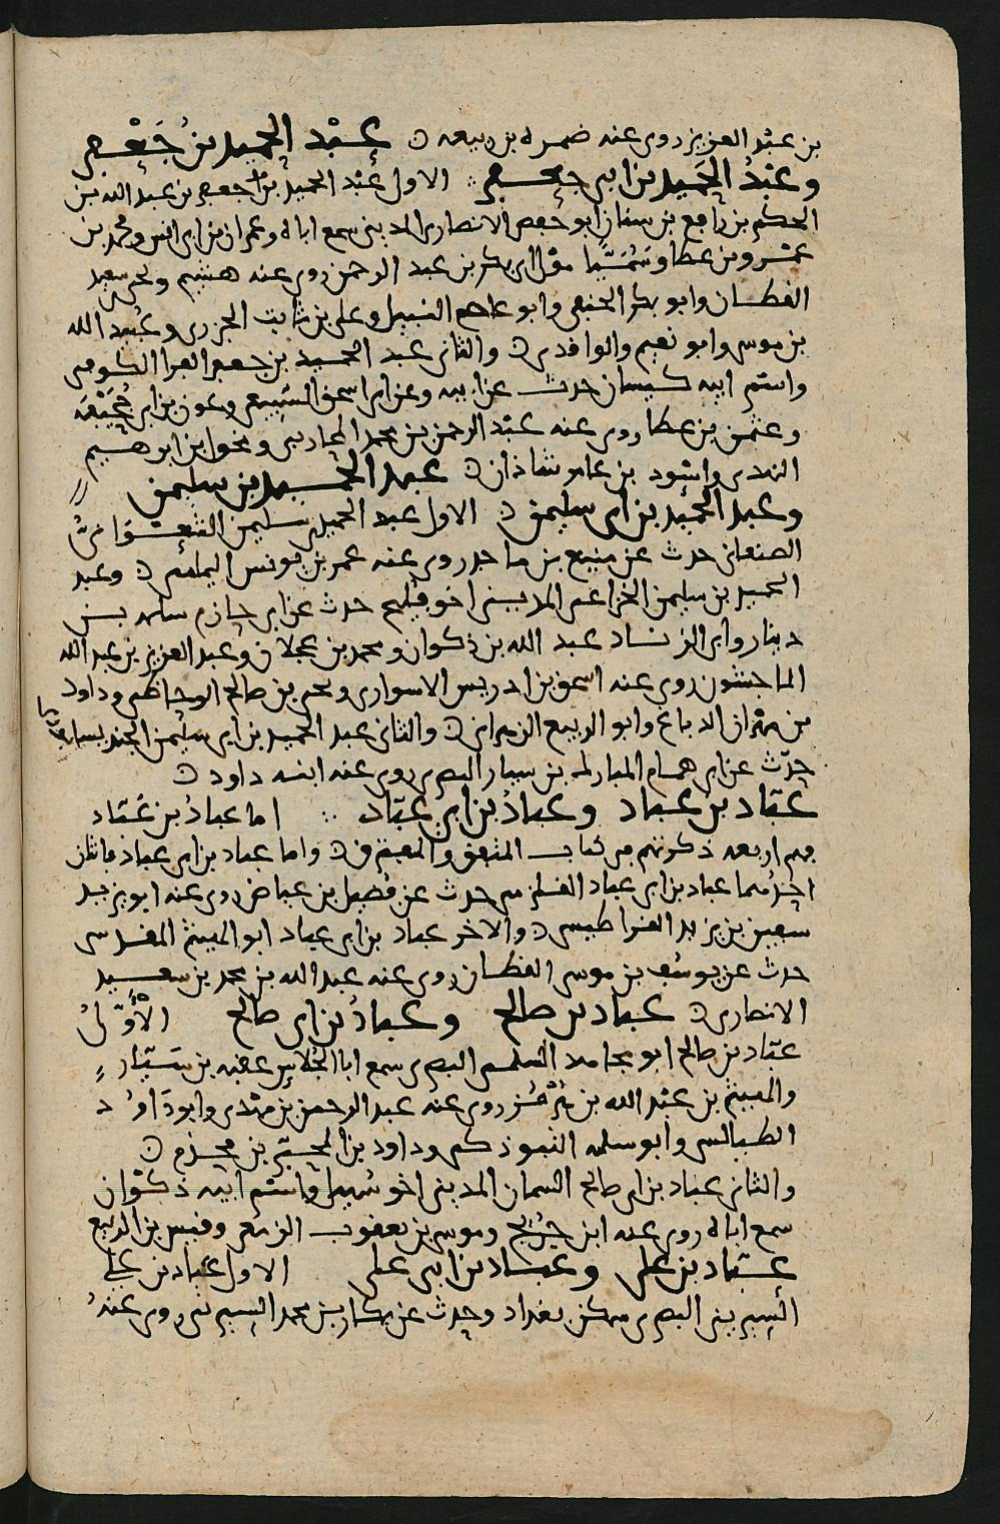 بن عبد العزيز روى عنه ضمره بن ربيعه ۞ عبد الحميد بن جعفر
وعبد الحميد بن ابي جعفر ؞ الاول عبد الحميد بن جعفر بن عبد الله بن
الحكم بن رافع بن سنان ابو حفص الانصاري المديني سمع اباه وعمران بن ابي انس ومحمد بن
عمرو بن عطا وسُمَيًّا مولى ابي بكر بن عبد الرحمن روى عنه هشيم ويحيى بن سعيد
القطان وابو بكر الحنفي وابو عاصم النبيل وعلي بن ثابت الجزري وعبيد الله
بن موسى وابو نعيم والواقدي ۞ والثاني عبد الحميد بن جعفر الفرا الكوفي
واسم ابيه كيسان حدث عن ابيه وعن ابي اسحق السبيعي وعون بن ابي جُحَيْفه
وعثمن بن عطا روى عنه عبد الرحمن بن محمد المحاربي ومخول بن ابرهيم
النهدي واسود بن عامر شاذان ۞ عبد الحميد بن سليمن
وعبد الحميد بن ابي سليمن ۞ الاول عبد الحميد بن سليمن
الصنعاني حدث عن منيع بن ماجد روى عنه عمر بن يونس اليمامي ۞ وعبد
الحميد بن سليمن الخزاعي المديني اخو فليح حدث عن ابي حازم سلمه بن
دينار وابي الزناد عبد الله بن ذكوان ومحمد بن عجلان وعبد العزيز بن عبد الله
الماجشون روى عنه اسحق بن ادريس الاسواري ويحيى بن صالح الوحاظي وداود
بن مهران الدباغ وابو الربيع الزهراني ۞ والثاني عبد الحميد بن ابي سليمن
حدّث عن ابي همام المبارك بن سيار البصري روى عنه ابنه داود ۞
عبّاد بن عباد وعبادُ بن ابي عبّاد ؞ اما عبادُ بن عَبّاد
فهم اربعه ذكرتهم في كتاب المتفق والمفترق ۞ واما عباد بن ابي عباد فاثنان
احدهما عباد بن ابي عباد القلزمي حدث عن فضيل بن عياض روى عنه ابو يزيد
بن يزيد القراطيسي ۞ والاخر عباد بن ابي عباد ابو الميثم المقدسي
حدث عن يوسف بن موسى القطان روى عنه عبد الله بن محمد بن سعيد
الانصاري ۞ عباد بن صالح وعبادُ بن ابي صالح الأوّلُ
عبّاد بن صالح ابو مجاهد السلمي البصري سمع ابا الجُلاس عقبه بن سَيّار
والهيثم بن عبد الله بن روى عنه عبد الرحمن بن مهدي وابو داود
الطيالسي وابو سلمه التبوذكي وداود بن المحبّر بن قحذم ۞
والثاني عباد بن ابي صالح السمان المديني اخو سُهيل واسم ابيه ذكوان
سمع اباه روى عنه ابن جُرَيج وموسى بن يعقوب الزمعي وقيس بن الربيع
عبّاد بن علي وعباد بن ابي علي الاول عباد بن علي
السيريني البصري سكن بغداد وحدث عن بكار بن محمد السيريني روى عنهُ